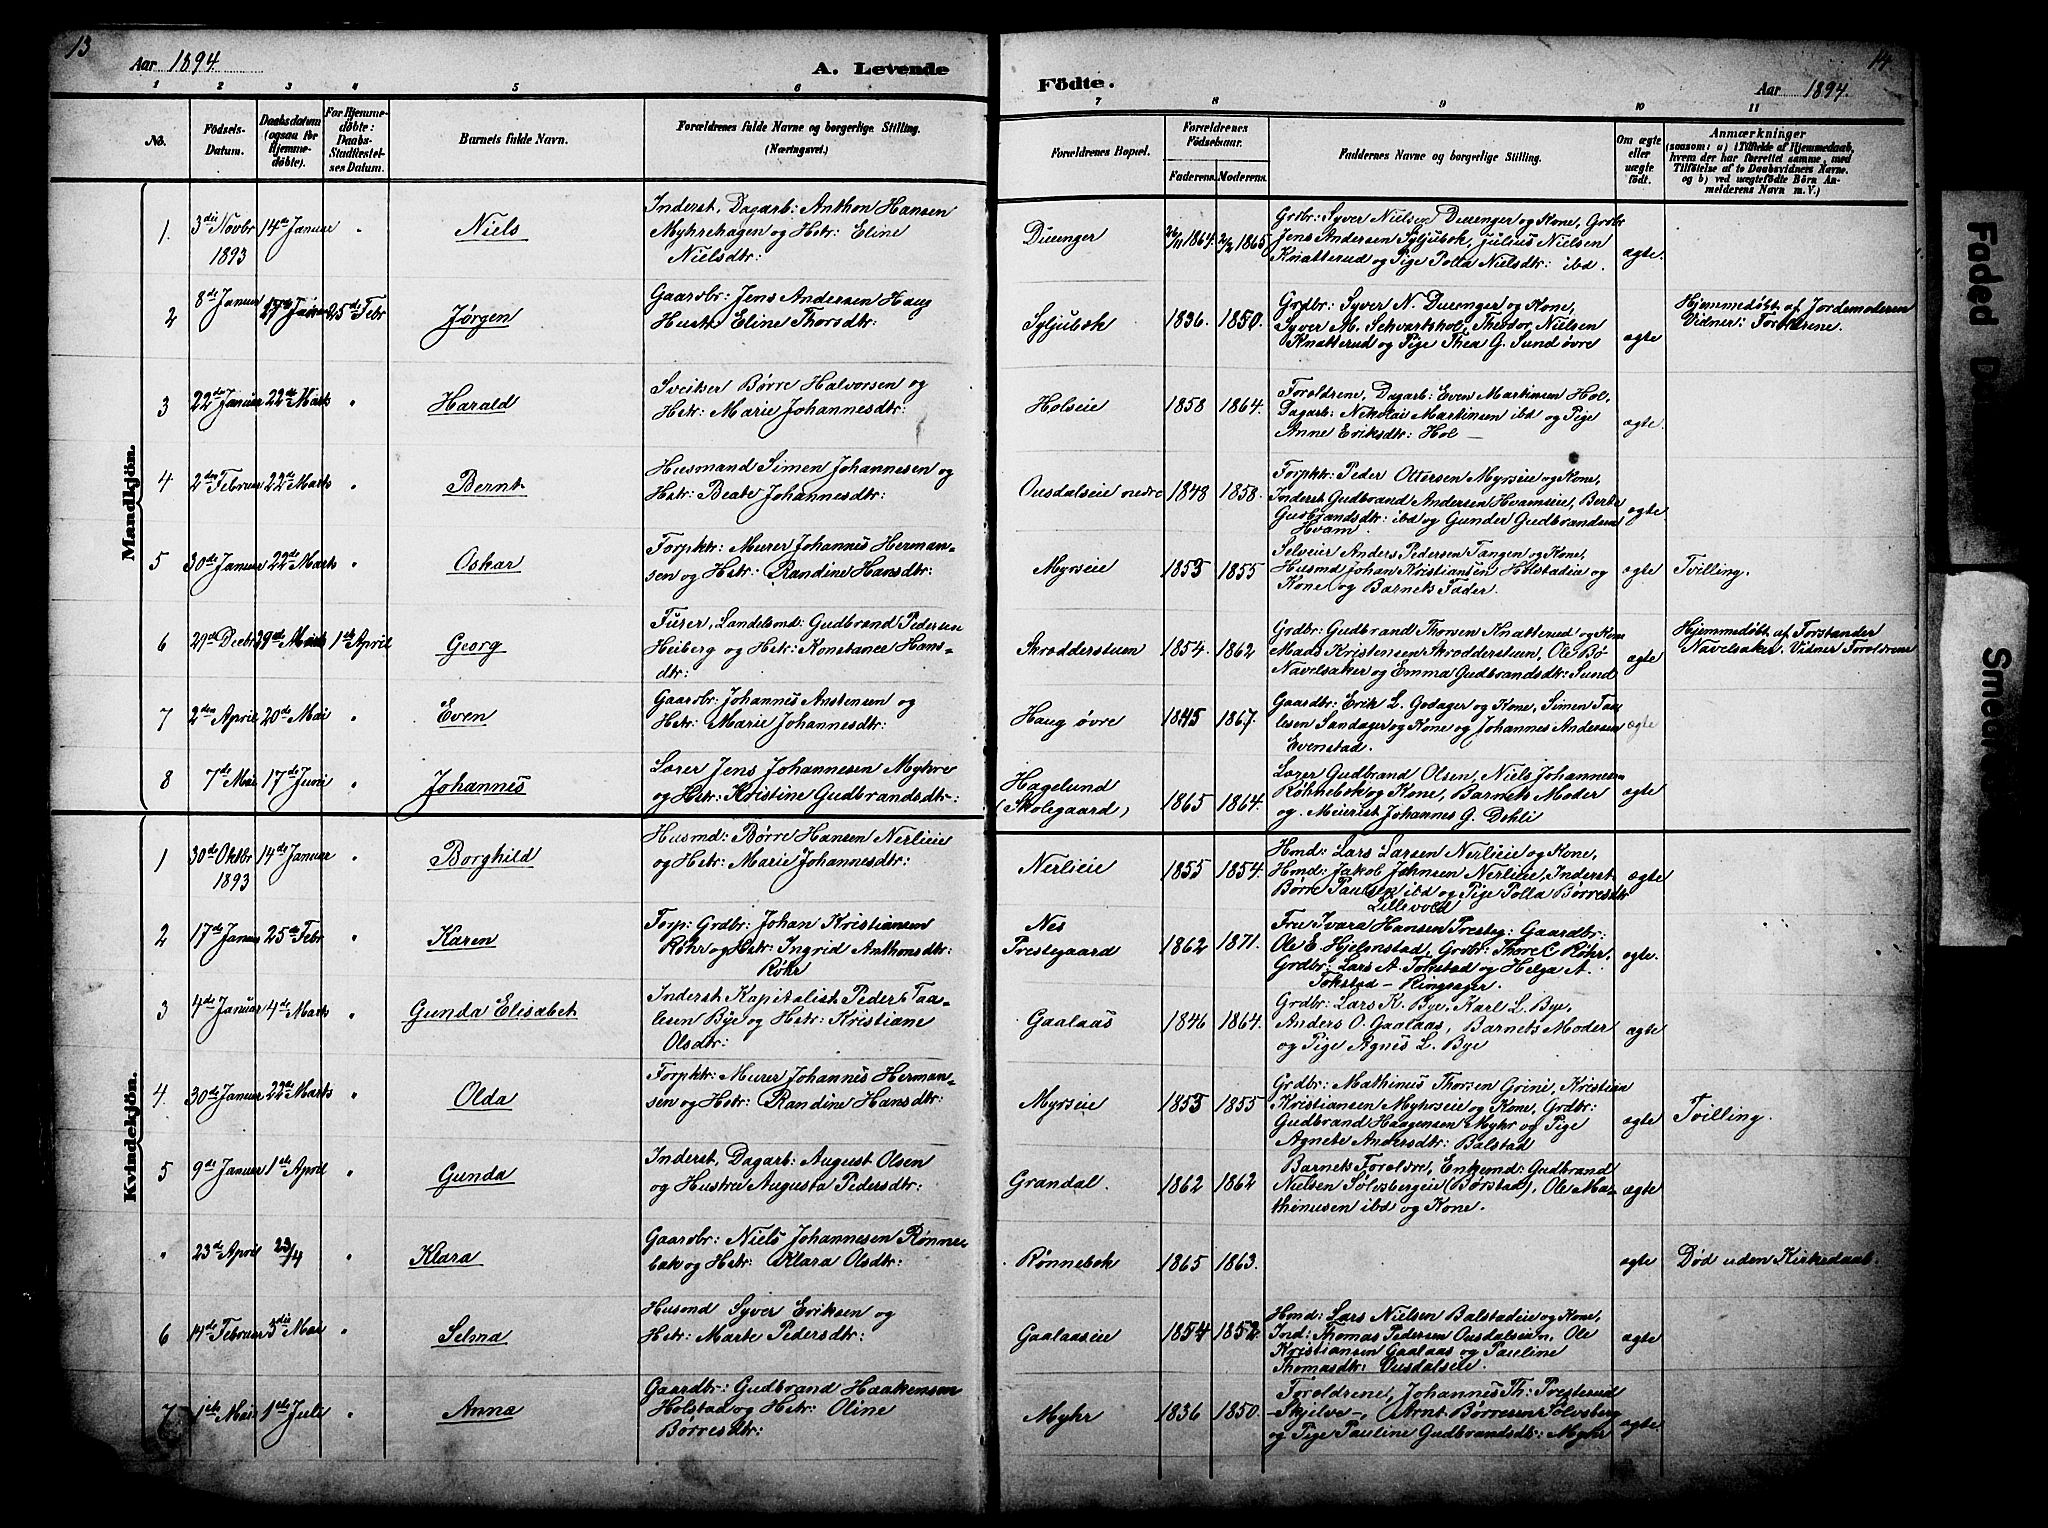 13
Aar 1894
A. Levende
1 2 3 4 5 6
No.
Födsels-
Datum.
Daabsdatum
(ogsaa for
Hjemme-
døbte).
For Hjemme-
døbte:
Daabs-
Stadfæstel-
ses Datum.
Barnets fulde Navn.
Forældrenes fulde Navne og borgerlige Stilling.
(Næringsvei.)
Mandkjön.
1. 3die Novbr 14de Januar " Niels
1893
Inderst, Dagarb: Anthon Hansen
Myhrehagen og Hstr: Eline
Nielsdtr:
2 8de Januar 25de Febr Jørgen
Gaardbr: Jens Andersen Haug
Hustr Eline Thorsdtr:
3 22de Januar 22de Marts " Harald
Sveitser Børre Halvorsen og
Hstr: Marie Johannesdtr:
4 2den Februar 22de Marts " Bernt
Husmand Simen Johannesen og
Hstr: Beate Johannesdtr:
5 30de Januar 22de Marts " Oskar
Forpktr: Murer Johannes Herman-
sen og Hstr: Randine Hansdtr:
6 29de Decbr 29de Marts 1ste April Georg
Furer, Landelsmd: Gudbrand Pedersen
Heiberg og Hstr: Konstance Hans-
dtr:
7 2den April 20de Mai " Even
Gaardbr: Johannes Anstensen og
Hstr: Marie Johannesdtr:
8 7de Mai 17de Juni " Johannes
Lærer Jens Johannesen Myhre
og Hstr: Kristine Gudbrandsdtr:
Kvindekjön.
1 30de Oktbr 14de Januar " Borghild
1893
Husmd: Børre Hansen Nerlieie
og Hstr: Marie Johannesdtr:
2 17de Januar 25de Febr " Karen
Forp: Grdbr: Johan Kristiansen
Røhr og Hstr: Ingrid Anthonsdtr:
Røhr
3 4de Januar 4de Marts " Gunda Elisabet
Inderst Kapitalist Peder Taa-
lesen Bye og Hstr: Kristiane
Olsdtr:
4. 30de Januar 22de Marts " Olda
Forpktr: Murer Johannes Herman-
sen og Hstr: Randine Hansdtr:
5 9de Januar 1ste April " Gunda
Inderst, Dagarb: August Olsen
og Hustru Augusta Pedersdtr:
" 23de April 23/4 " Klara
Gaardbr: Niels Johannesen Rønne-
bæk og Hstr: Klara Olsdtr:
6 14de Februar 3die Mai " Selma
Husmd Syver Eriksen og
Hstr: Marte Pedersdtr:
7 1ste Mai 1ste Juli " Anna
Gaardbr: Gudbrand Haakensen
Holstad og Hstr: Oline
Børresdtr:
14
Födte.
Aar 1894.
7 8 9 10 11
Forældrenes Bopæl.
Forældrenes
Födselsaar.
Faderens. Moderens.
Faddernes Navne og borgerlige Stilling.
Om ægte
eller
uægte
født.
Anmærkninger
(saasom: a) i Tilfælde af Hjemmedaab,
hvem der har forrettet samme, med
Tilföielse af to Daabsvidners Navne.
og b) ved uægtefödte Börn An-
melderens Navn m. V.)
Duenger 1864. 1865
Grdbr: Syver Nielsen Duenger og Kone, Grdbr
Jens Andersen Syljubæk, Julius Nielsen
Knatterud og Pige Polla Nielsdtr: ibd.
ægte.
Syljubæk 1836. 1850.
Grdbr: Syver N. Duenger og Kone,
Syver M. Schvartshol, Theodor Nielsen
Knatterud og Pige Thea G. Sund øvre
ægte
Hjemmedøbt af Jordemoderen
Vidner: Forældrene.
Holseie 1858 1864.
Forældrene, Dagarb: Even Martinsen Hol,
Dagarb: Nikolai Martinsen ibd og Pige
Anne Eriksdtr: Hol —
ægte.
Ousdalseie nedre 1848 1858.
Forpktr: Peder Ottersen Myrseie og Kone,
Inderst Gudbrand Andersen Hvamseie, Berte
Gudbrandsdtr: ibd og Gunder Gudbrandsen
Hvam.
ægte
Myrseie 1853 1855
Selveier Anders Pedersen Tangen og Kone,
Husmd Johan Kristiansen Holstadeie og
Kone og Barnets Fader.
ægte
Tvilling.
Skrædderstuen 1854. 1862
Grdbr: Gudbrand Thorsen Knatterud og Kone
Mads Kristensen Skrædderstuen, Ole Bø
Navelsaker og Emma Gudbrandsdtr: Sund
ægte
Hjemmedøbt af Forstander
Navelsaker, Vidner Forældrene
Haug øvre 1845 1867.
Gaardbr: Erik L. Godager og Kone, Simen Taa-
lesen Sandager og Kone og Johannes Andersen
Evenstad.
ægte
Hagelund
(Skolegaard) 1865 1864.
Lærer Gudbrand Olsen, Niels Johannesen
Røhnebæk og Kone, Barnets Moder
og Meierist Johannes G. Dehli
ægte
Nerlieie 1855 1854.
Hmd: Lars Larsen Nerlieie og Kone,
Hmd: Jakob Johnsen Nerlieie, Inderst
Børre Paulsen ibd og Pige Polla Børresdtr
Lillevold
ægte
Nes
Prestegaard 1862 1871.
Fru Ivara Hansen Presteg: Gaardbr:
Ole E Hjelmstad, Grdbr: Thore C Røhr,
Grdbr: Lars A. Tokstad og Helga A.
Tokstad — Ringsager.
ægte.
Gaalaas 1846 1864.
Grdbr: Lars K. Bye, Karl L. Bye,
Anders O. Gaalaas, Barnets Moder
og Pige Agnes L. Bye
ægte
Myrseie 1853 1855
Grdbr: Mathinus Thorsen Grini, Kristian
Kristiansen Myhrseie og Kone, Grdbr:
Gudbrand Haagensen Myhr og Pige
Agnete Andersdtr: Balstad
ægte
Tvilling.
Grandal. 1862 1862
Barnets Forældre, Enkemd: Gudbrand
Nielsen Sølvsbergeie (Børstad), Ole Ma-
thinusen ibd og Kone.
ægte
Rønnebæk 1865 1863.
ægte
Død uden Kirkedaab.
Gaalaaseie 1854 1852
Hmd: Lars Nielsen Balstadeie og Kone,
Ind: Thomas Pedersen Ousdalseie n, Ole
Kristiansen Gaalaas og Pauline
Thomasdtr: Ousdalseie.
ægte
Myhr 1836 1850.
Forældrene, Johannes Th: Presterud
—Skjelve—, Arnt Børresen Sølvsberg
og Pige Pauline Gudbrandsdtr: Myhr
ægte.
Faded